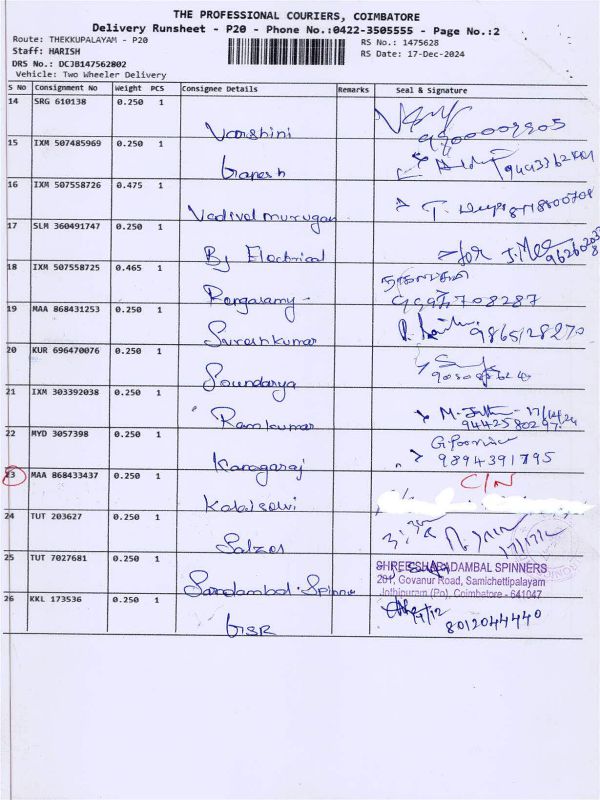 THE PROFESSIONAL COURIERS, COIMBATORE
Delivery Runsheet - P20 - Phone No.:0422-3505555 - Page No.:2
Route: THEKKUPALAYAM - P20
RS No.: 1475628
Staff: HARISH
RS Date: 17-Dec-2024
DRS No.: DCJB147562802
Vehicle: Two Wheeler Delivery
S No Consignment No Weight PCS Consignee Details Remarks Seal & Signature
14 SRG 610138 0.250 1
Varshini
15 IXM 507485969 0.250 1
Ganesh
16 IXM 507558726 0.475 1
Vadivel murugan
17 SLM 360491747 0.250 1
By Electrical for
18 IXM 507558725 0.465 1
Rangasamy
19 MAA 868431253 0.250 1
Sureshkumar 9865128270
20 KUR 696470076 0.250 1
Soundarya
21 IXM 303392038 0.250 1
Ramkumar 9442580297
22 MYD 3057398 0.250 1
Kanagaraj 9894391795
23 MAA 868433437 0.250 1 C/N
Kalaiselvi
24 TUT 203627 0.250 1
Salzer 17/12/2
25 TUT 7027681 0.250 1
SHREE SHARADAMBAL SPINNERS
201, Govanur Road, Samichettipalayam
Saradambal Spinn
Jothipuram (Po), Coimbatore - 641047
26 KKL 173536 0.250 1
GSR 8012044440